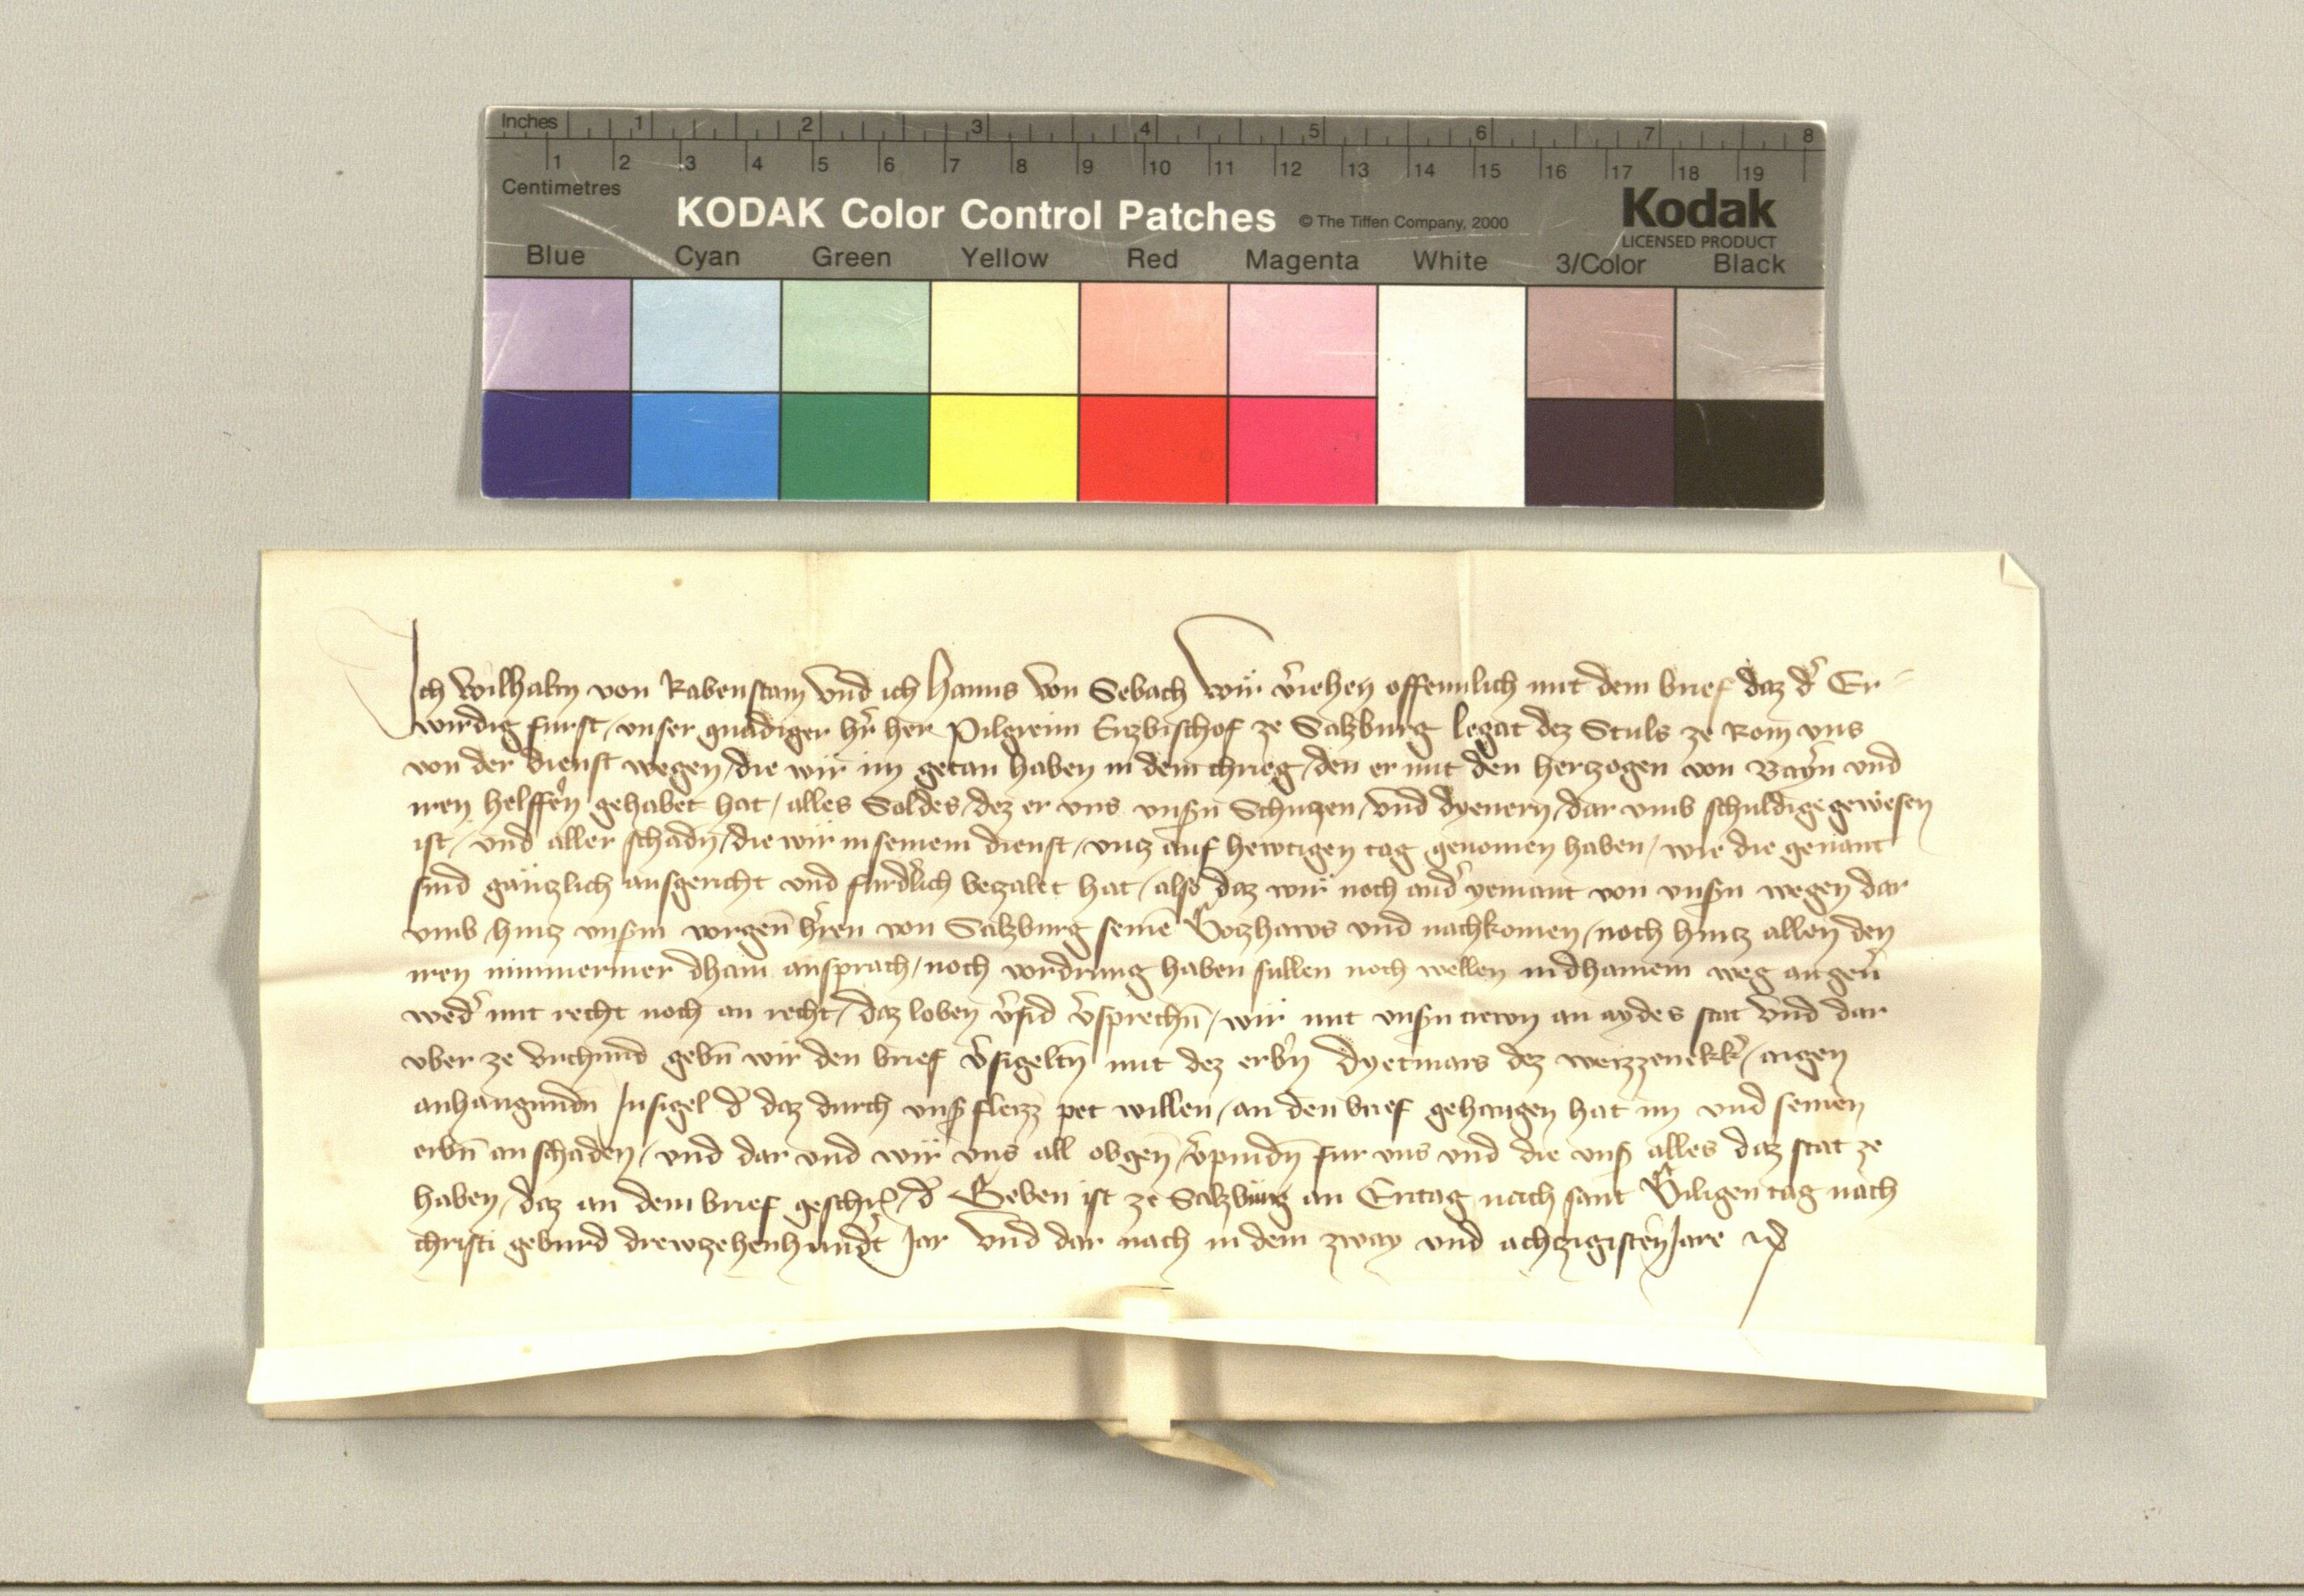 Inches 1 2 3 4 5 6 7 8
1 2 3 4 5 6 7 8 9 10 11 12 13 14 15 16 17 18 19
Centimetres
KODAK Color Control Patches © The Tiffen Company, 2000 Kodak
LICENSED PRODUCT
Blue Cyan Green Yellow Red Magenta White 3/Color Black
Ich Wilhalm von Rabenstain vnd ich Hanns von Sebach wir v̓iehen offennlich mit dem brief daz d̓ Er-
wirdig furst / vnser gnadiger hr̓ her Pilgreim Erzbischof ze Salzburg legat dez Stuls ze Rom vns
von der dienst wegen / die wir im getan haben in dem chrieg / den er mit den herzogen von Bayr̓n vnd
iren helffer̓n gehabet hat / alles Soldes / dez er vns vnsn̓ Schutzen / vnd dyenern / dar vmb schuldige gewesen
ist / vnd aller schadn̄ / die wir in seinem dienst / vntz auf hewtigen tag genomen haben / wie die genant
sind gäntzlich ausgericht vnd furdl̓ich betzalet hat / also daz wir noch and̓ yemant von vnsn̓ wegen dar
vmb / hintz vnsm̓ vorgen̄ hr̓en von Salzburg seinē Gotzhaws vnd nachkomen / noch hintz allen den
iren nimmermer dhain ansprach / noch vordrung haben sullen noch wellen in dhainem weg an geu̓
wed̓ mit recht noch an recht / daz loben v̓sprechn̄ / wir mit vnsn̓ trewn an aydes stat vnd dar
vber ze vrchund gebn̄ wir den brief v̓sigeltn̄ mit dez erbn̓ Dyetmars dez weizzenekk̓ / aigen
anhangundn̄ Insigel d̓ daz durch vns̓ fleizz pet willen / an den brief gehangen hat im vnd seinen
erbn̄ an schaden / vnd dar vnd wir vns all obgen̄ / v̓pindn̄ fur vns vnd die vns̓ alles daz stat ze
haben / daz an dem brief geschr̓ / d̓ Geben ist ze Salzburg an Eritag nach sant Giligen tag nach
christi geburd drewzehenhundt̓ Jar vnd dar nach in dem zway vnd achtzigisten̓ Jare